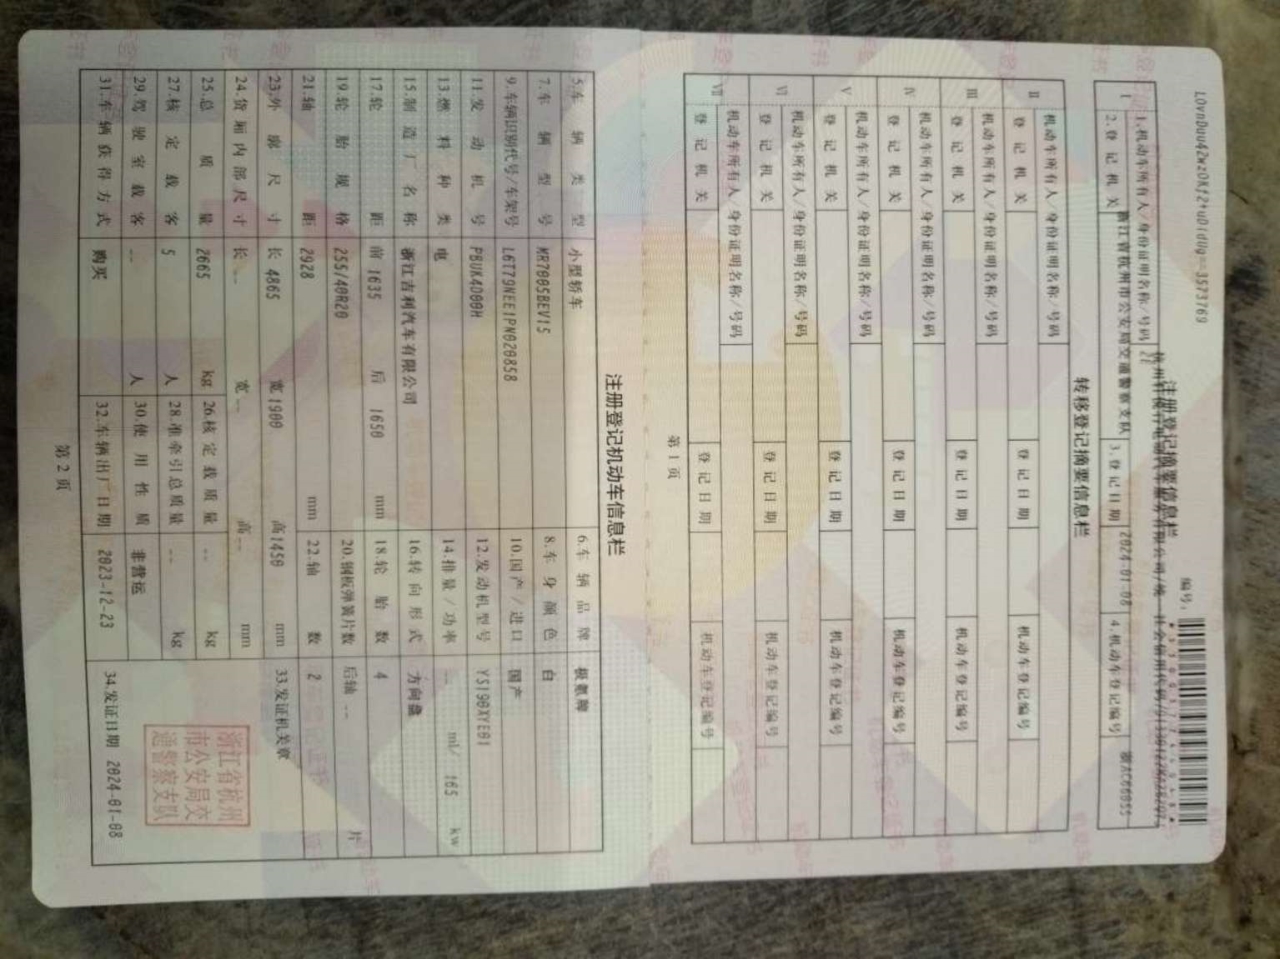 编号:
注册登记摘要信息栏
Ⅰ
1.机动车所有人/身份证明名称/号码
2.登记机关 浙江省杭州市公安局交通警察支队 3.登记日期 2024-01-08 4.机动车登记编号
转移登记摘要信息栏
Ⅱ 机动车所有人/身份证明名称/号码
登记机关 登记日期 机动车登记编号
Ⅲ 机动车所有人/身份证明名称/号码
登记机关 登记日期 机动车登记编号
Ⅳ 机动车所有人/身份证明名称/号码
登记机关 登记日期 机动车登记编号
Ⅴ 机动车所有人/身份证明名称/号码
登记机关 登记日期 机动车登记编号
Ⅵ 机动车所有人/身份证明名称/号码
登记机关 登记日期 机动车登记编号
Ⅶ 机动车所有人/身份证明名称/号码
登记机关 登记日期 机动车登记编号
第 1 页
注册登记机动车信息栏
5.车辆类型 小型轿车 6.车辆品牌 极氪牌
7.车辆型号 MR7005BEV15 8.车身颜色 白
9.车辆识别代号/车架号 L6T79NEE1PN020858 10.国产/进口 国产
11.发动机号 PBUK4D00H 12.发动机型号 YS190XYE01
13.燃料种类 电 14.排量/功率 -- ml/ 165 kw
15.制造厂名称 浙江吉利汽车有限公司 16.转向形式 方向盘
17.轮距 前 1635 后 1650 mm 18.轮胎数 4
19.轮胎规格 255/40R20 20.钢板弹簧片数 后轴 -- 片
21.轴距 2928 mm 22.轴数 2
23.外廓尺寸 长 4865 宽 1900 高 1450 mm 33.发证机关章
24.货厢内部尺寸 长 -- 宽 -- 高 -- mm
25.总质量 2665 kg 26.核定载质量 -- kg
27.核定载客 5 人 28.准牵引总质量 -- kg
29.驾驶室载客 -- 人 30.使用性质 非营运
31.车辆获得方式 购买 32.车辆出厂日期 2023-12-23 34.发证日期 2024-01-08
浙江省杭州
市公安局交
通警察支队
第 2 页